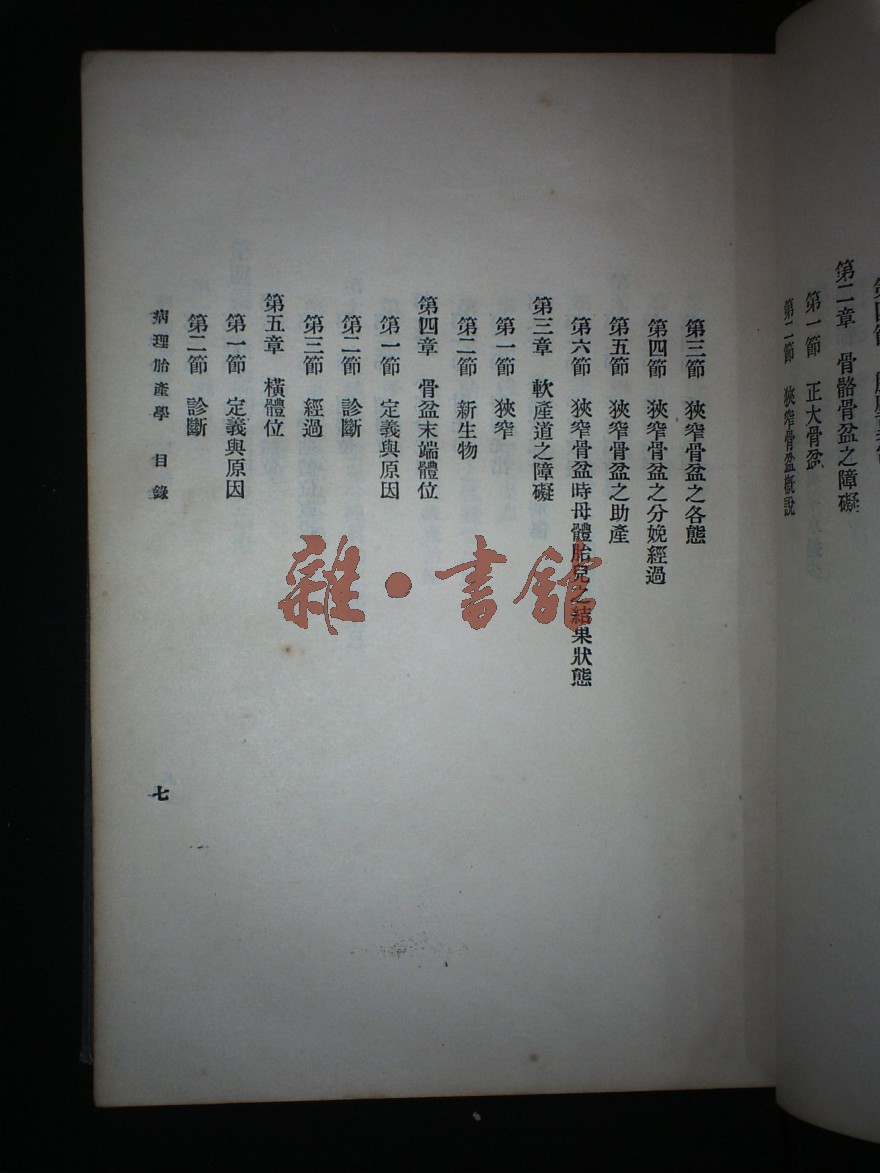 第二章 骨骼骨盆之障礙
第一節 正大骨盆
第二節 狹窄骨盆概說
第三節 狹窄骨盆之各態
第四節 狹窄骨盆之分娩經過
第五節 狹窄骨盆之助產
第六節 狹窄骨盆時母體胎兒之結果狀態
第三章 軟產道之障礙
第一節 狹窄
第二節 新生物
第四章 骨盆末端體位
第一節 定義與原因
第二節 診斷
第三節 經過
第五章 橫體位
第一節 定義與原因
第二節 診斷
病理胎產學 目錄
七
雜·書館